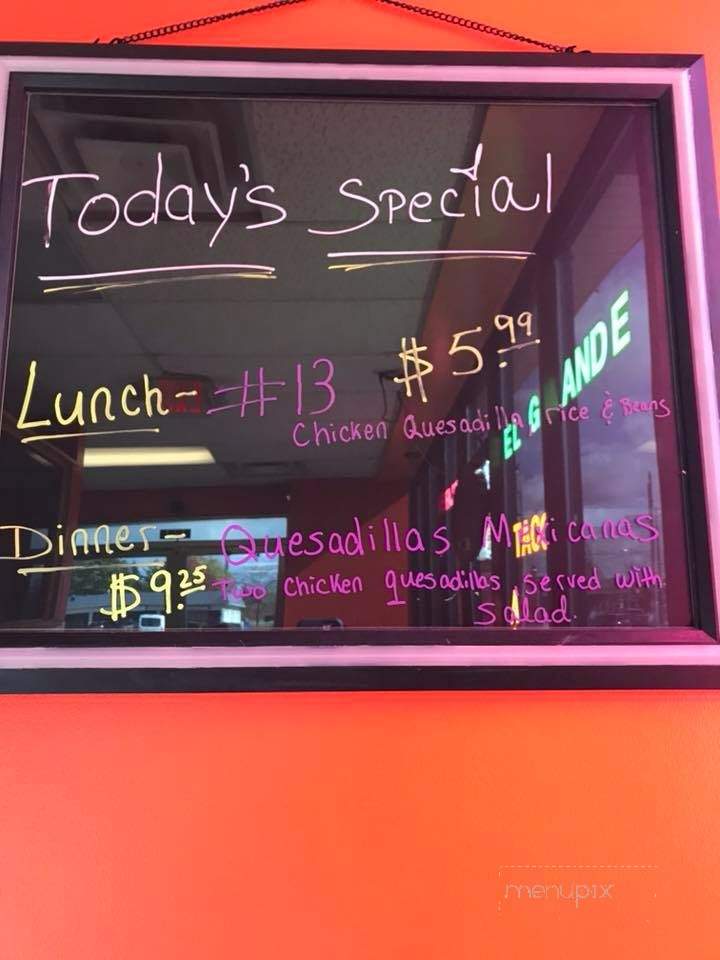 Today's Special
Lunch- #13 $5.99
Chicken Quesadilla, rice & Beans
EL G ANDE
TACO
Dinner- Quesadillas Mexicanas
$9.25 Two Chicken quesadillas, served with
Salad.
menupix